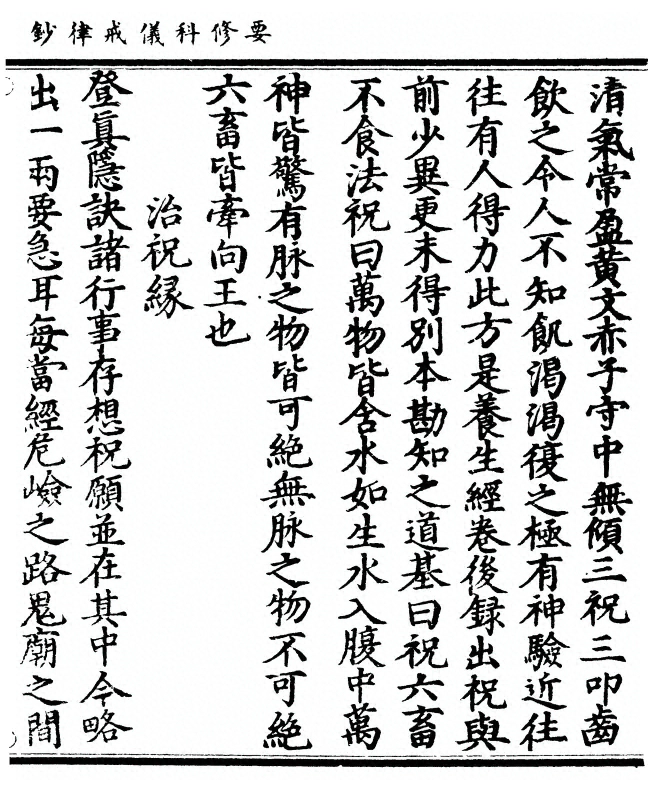 要修科儀戒律鈔
清氣常盈黃文赤子守中無傾三祝三叩齒
飲之令人不知飢渴渴復之極有神驗近往
往有人得力此方是養生經卷後録出祝與
前少異更未得別本勘知之道基曰祝六畜
不食法祝曰萬物皆含水如生水入腹中萬
神皆驚有脉之物皆可絶無脉之物不可絶
六畜皆牽向王也
治祝縁
登真隱訣諸行事存想祝願並在其中今略
出一兩要急耳每當經危嶮之路鬼廟之間